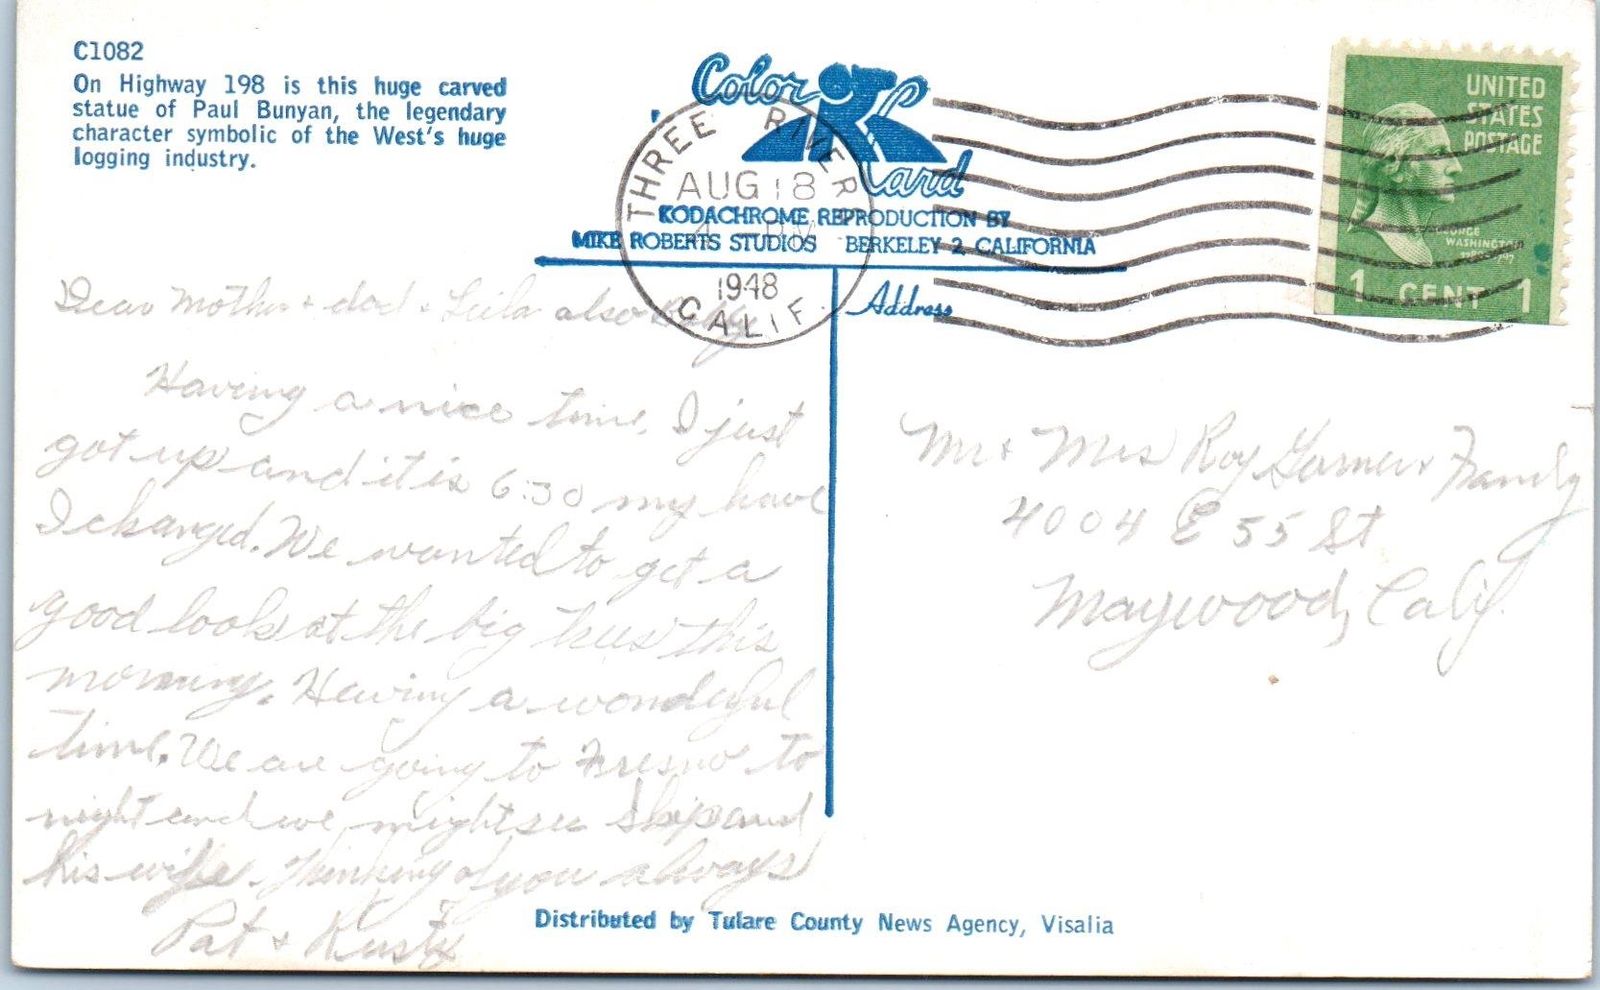 C1082
On Highway 198 is this huge carved
statue of Paul Bunyan, the legendary
character symbolic of the West's huge
logging industry.
Color Card
KODACHROME REPRODUCTION BY
MIKE ROBERTS STUDIOS BERKELEY 2 CALIFORNIA
THREE RIVERS
AUG 18
4 - PM
1948
CALIF.
UNITED
STATES
POSTAGE
GEORGE
WASHINGTON
1 CENT 1
Address
Dear Mother + dad + Leila also
Having a nice time. I just
got up and it is 6:30 my have
I changed. We wanted to get a
good look at the big trees this
morning. Having a wonderful
time. We are going to Fresno to
night and we might see Skip and
his wife. Thinking of you always
Pat + Rusty
Mr + Mrs Roy + Family
4004 E 55 St
Maywood, Calif.
Distributed by Tulare County News Agency, Visalia